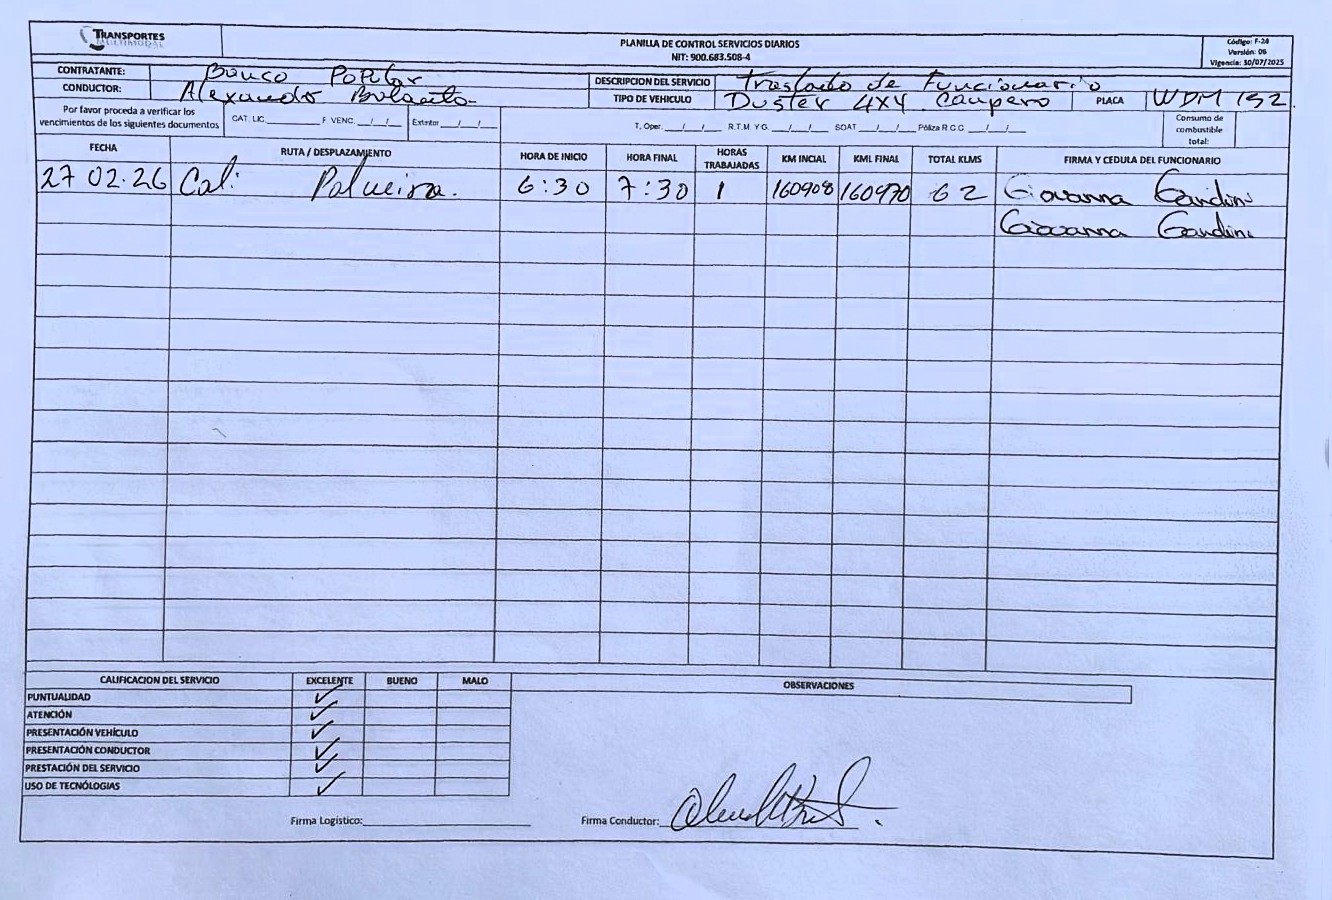 TRANSPORTES
MULTIMODAL
PLANILLA DE CONTROL SERVICIOS DIARIOS
NIT: 900.683.508-4
Código: F-24
Versión: 06
Vigencia: 30/07/2025
CONTRATANTE: Banco Popular
CONDUCTOR: Alexander
DESCRIPCION DEL SERVICIO Traslado de Funcionario
TIPO DE VEHICULO Duster 4x4 Campero PLACA WDM 152
Por favor proceda a verificar los
vencimientos de los siguientes documentos
CAT. LIC.________ F. VENC. __/__/__ Extintor __/__/__ T. Oper. __/__/__ R.T.M. Y G. __/__/__ SOAT __/__/__ Póliza R.C.C __/__/__
Consumo de
combustible
total:
FECHA RUTA / DESPLAZAMIENTO HORA DE INICIO HORA FINAL HORAS TRABAJADAS KM INCIAL KML FINAL TOTAL KLMS FIRMA Y CEDULA DEL FUNCIONARIO
27 02.26 Cali Palmeira. 6:30 7:30 1 160908 160970 62 Giovanna Gandini
Giovanna Gandini
CALIFICACION DEL SERVICIO EXCELENTE BUENO MALO OBSERVACIONES
PUNTUALIDAD ✓
ATENCIÓN ✓
PRESENTACIÓN VEHÍCULO ✓
PRESENTACIÓN CONDUCTOR ✓
PRESTACIÓN DEL SERVICIO ✓
USO DE TECNÓLOGIAS ✓
Firma Logístico:________ Firma Conductor:________